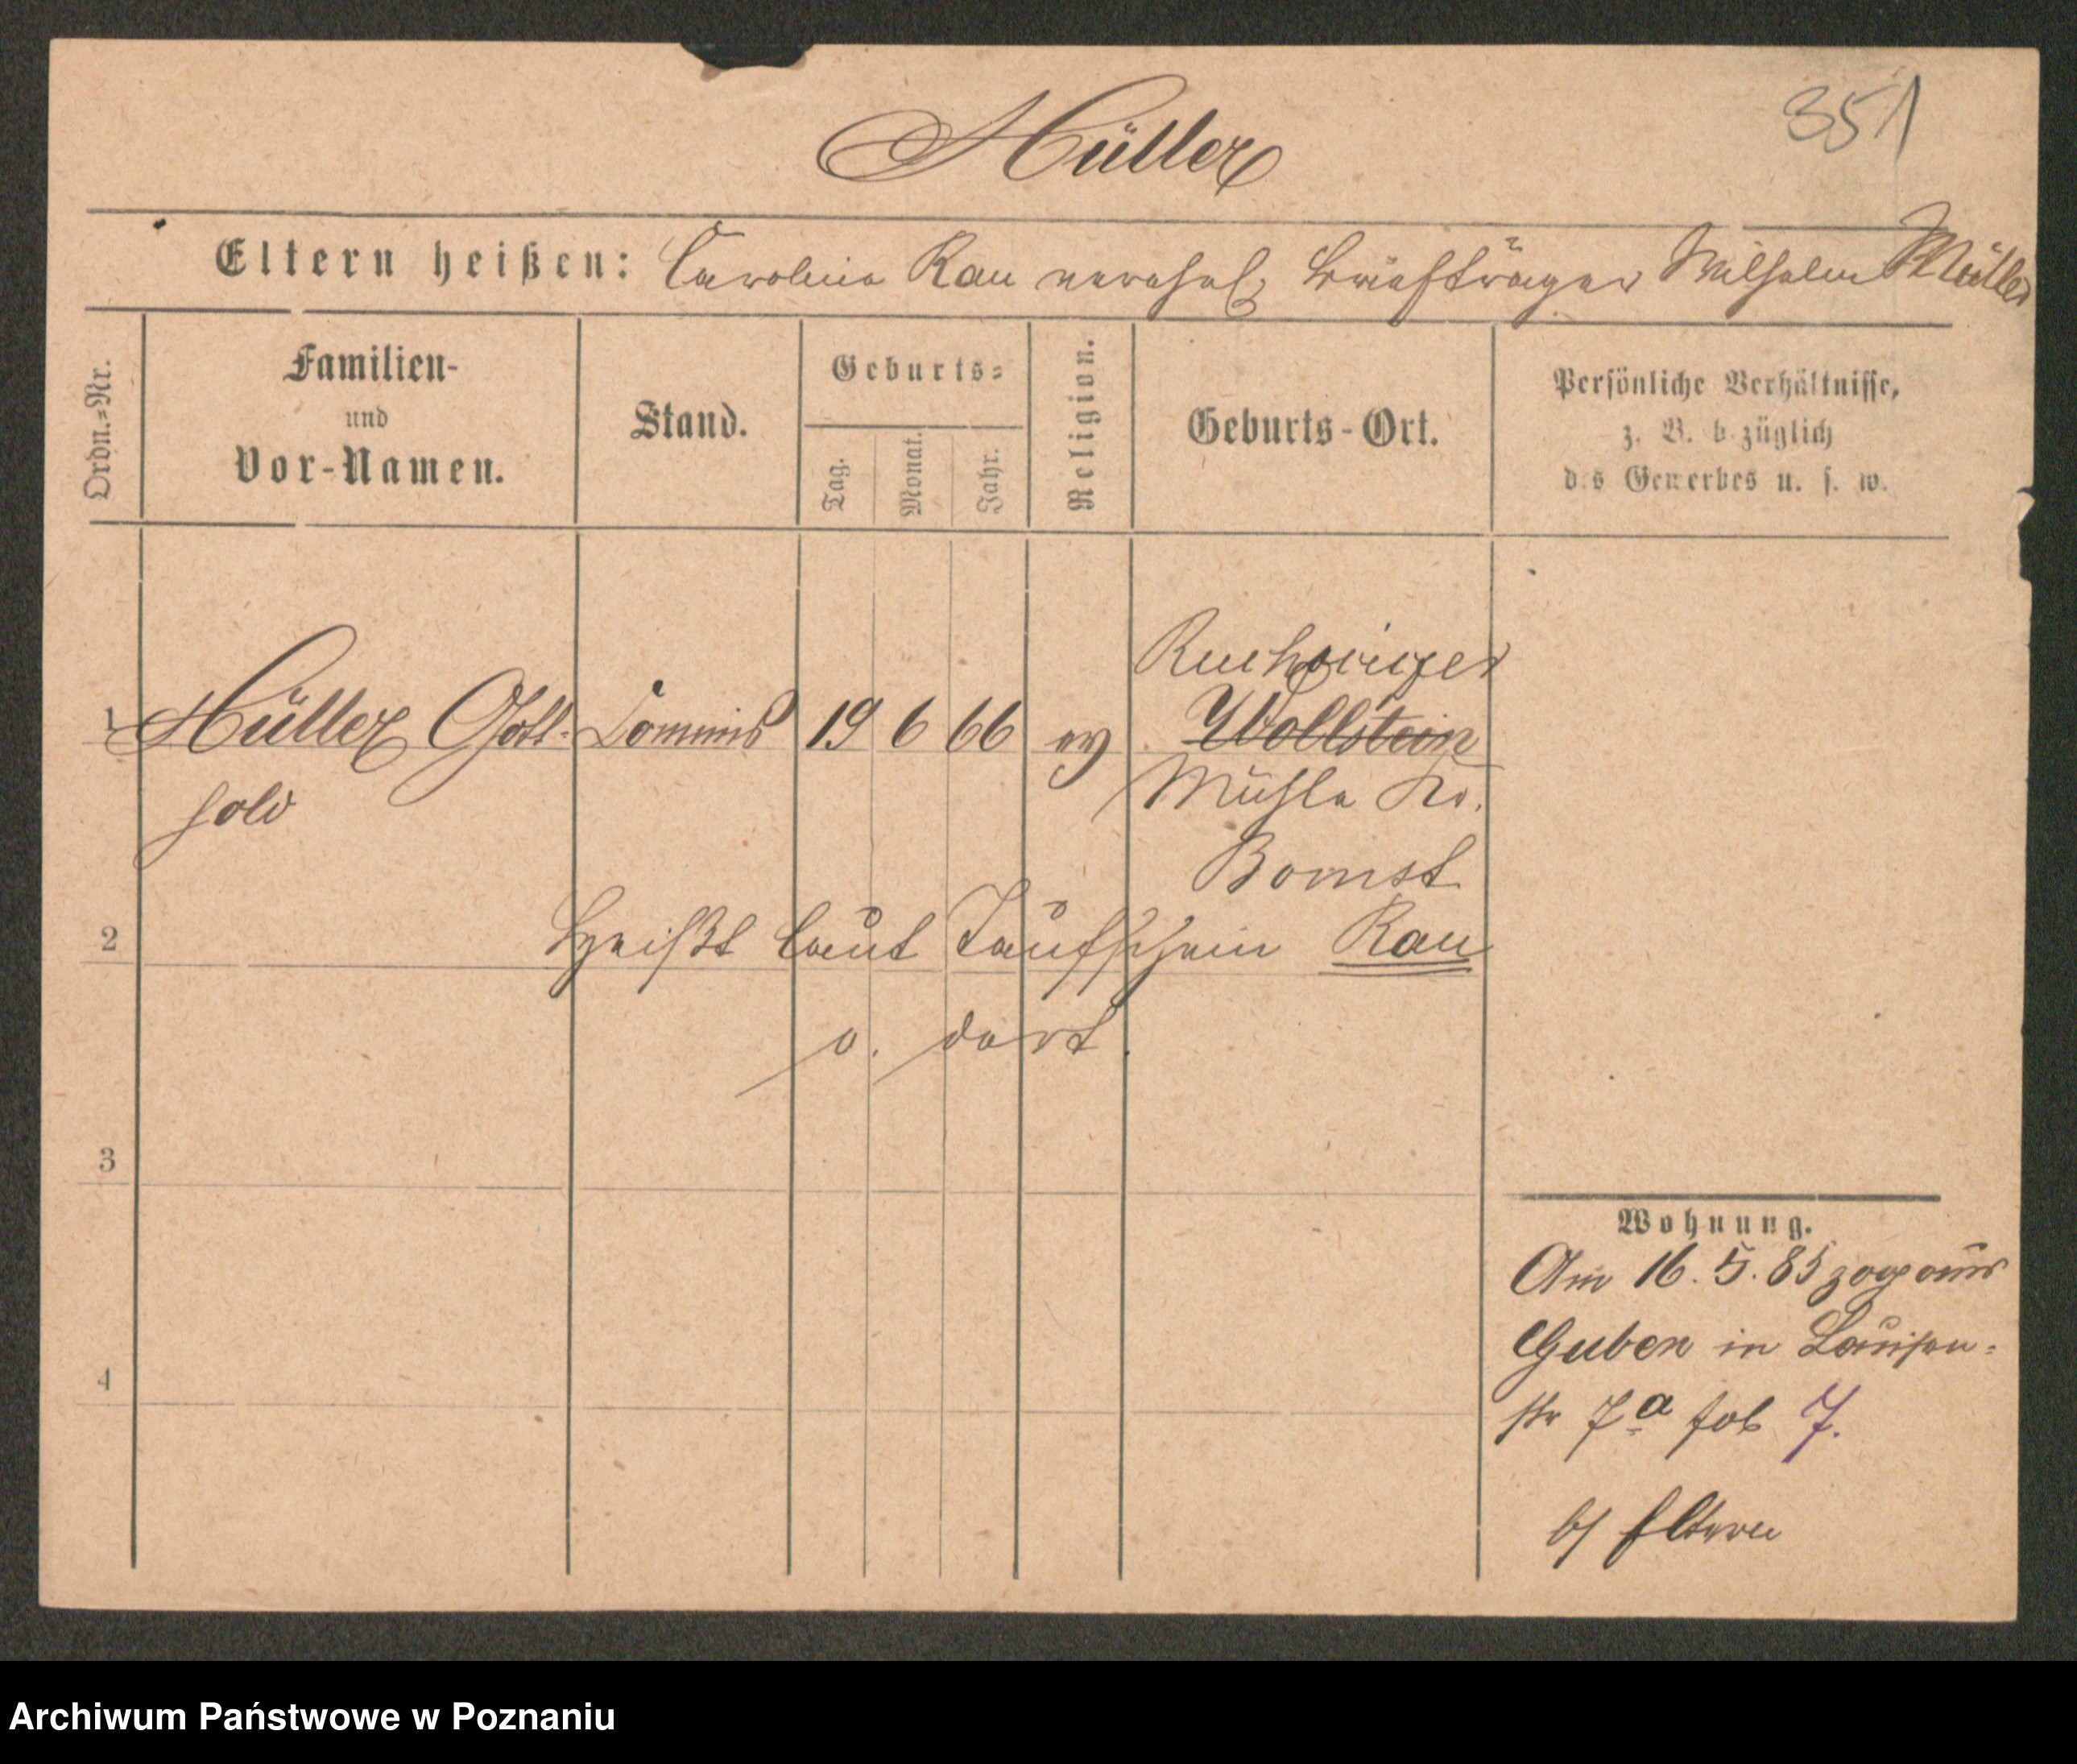 351
Müller
Eltern heißen: Carolina Rau verehel. Briefträger Wilhelm Müller
Ordn.=Nr.
Familien-
und
Vor-Namen.
Stand.
Geburts=
Tag.
Monat.
Jahr.
Religion.
Geburts-Ort.
Persönliche Verhältnisse,
z. B. bezüglich
des Gewerbes u. s. w.
1 Müller Gott- Commis 19 6 66 ev Wollstein
hold
Mühle Kr.
Bomst
2 Heißt laut Taufschein Rau
o. dort.
3
4
Wohnung.
Am 16. 5. 85 zog aus
Guben in Louisen=
str 7a fol 7.
b/ Eltern
Archiwum Państwowe w Poznaniu